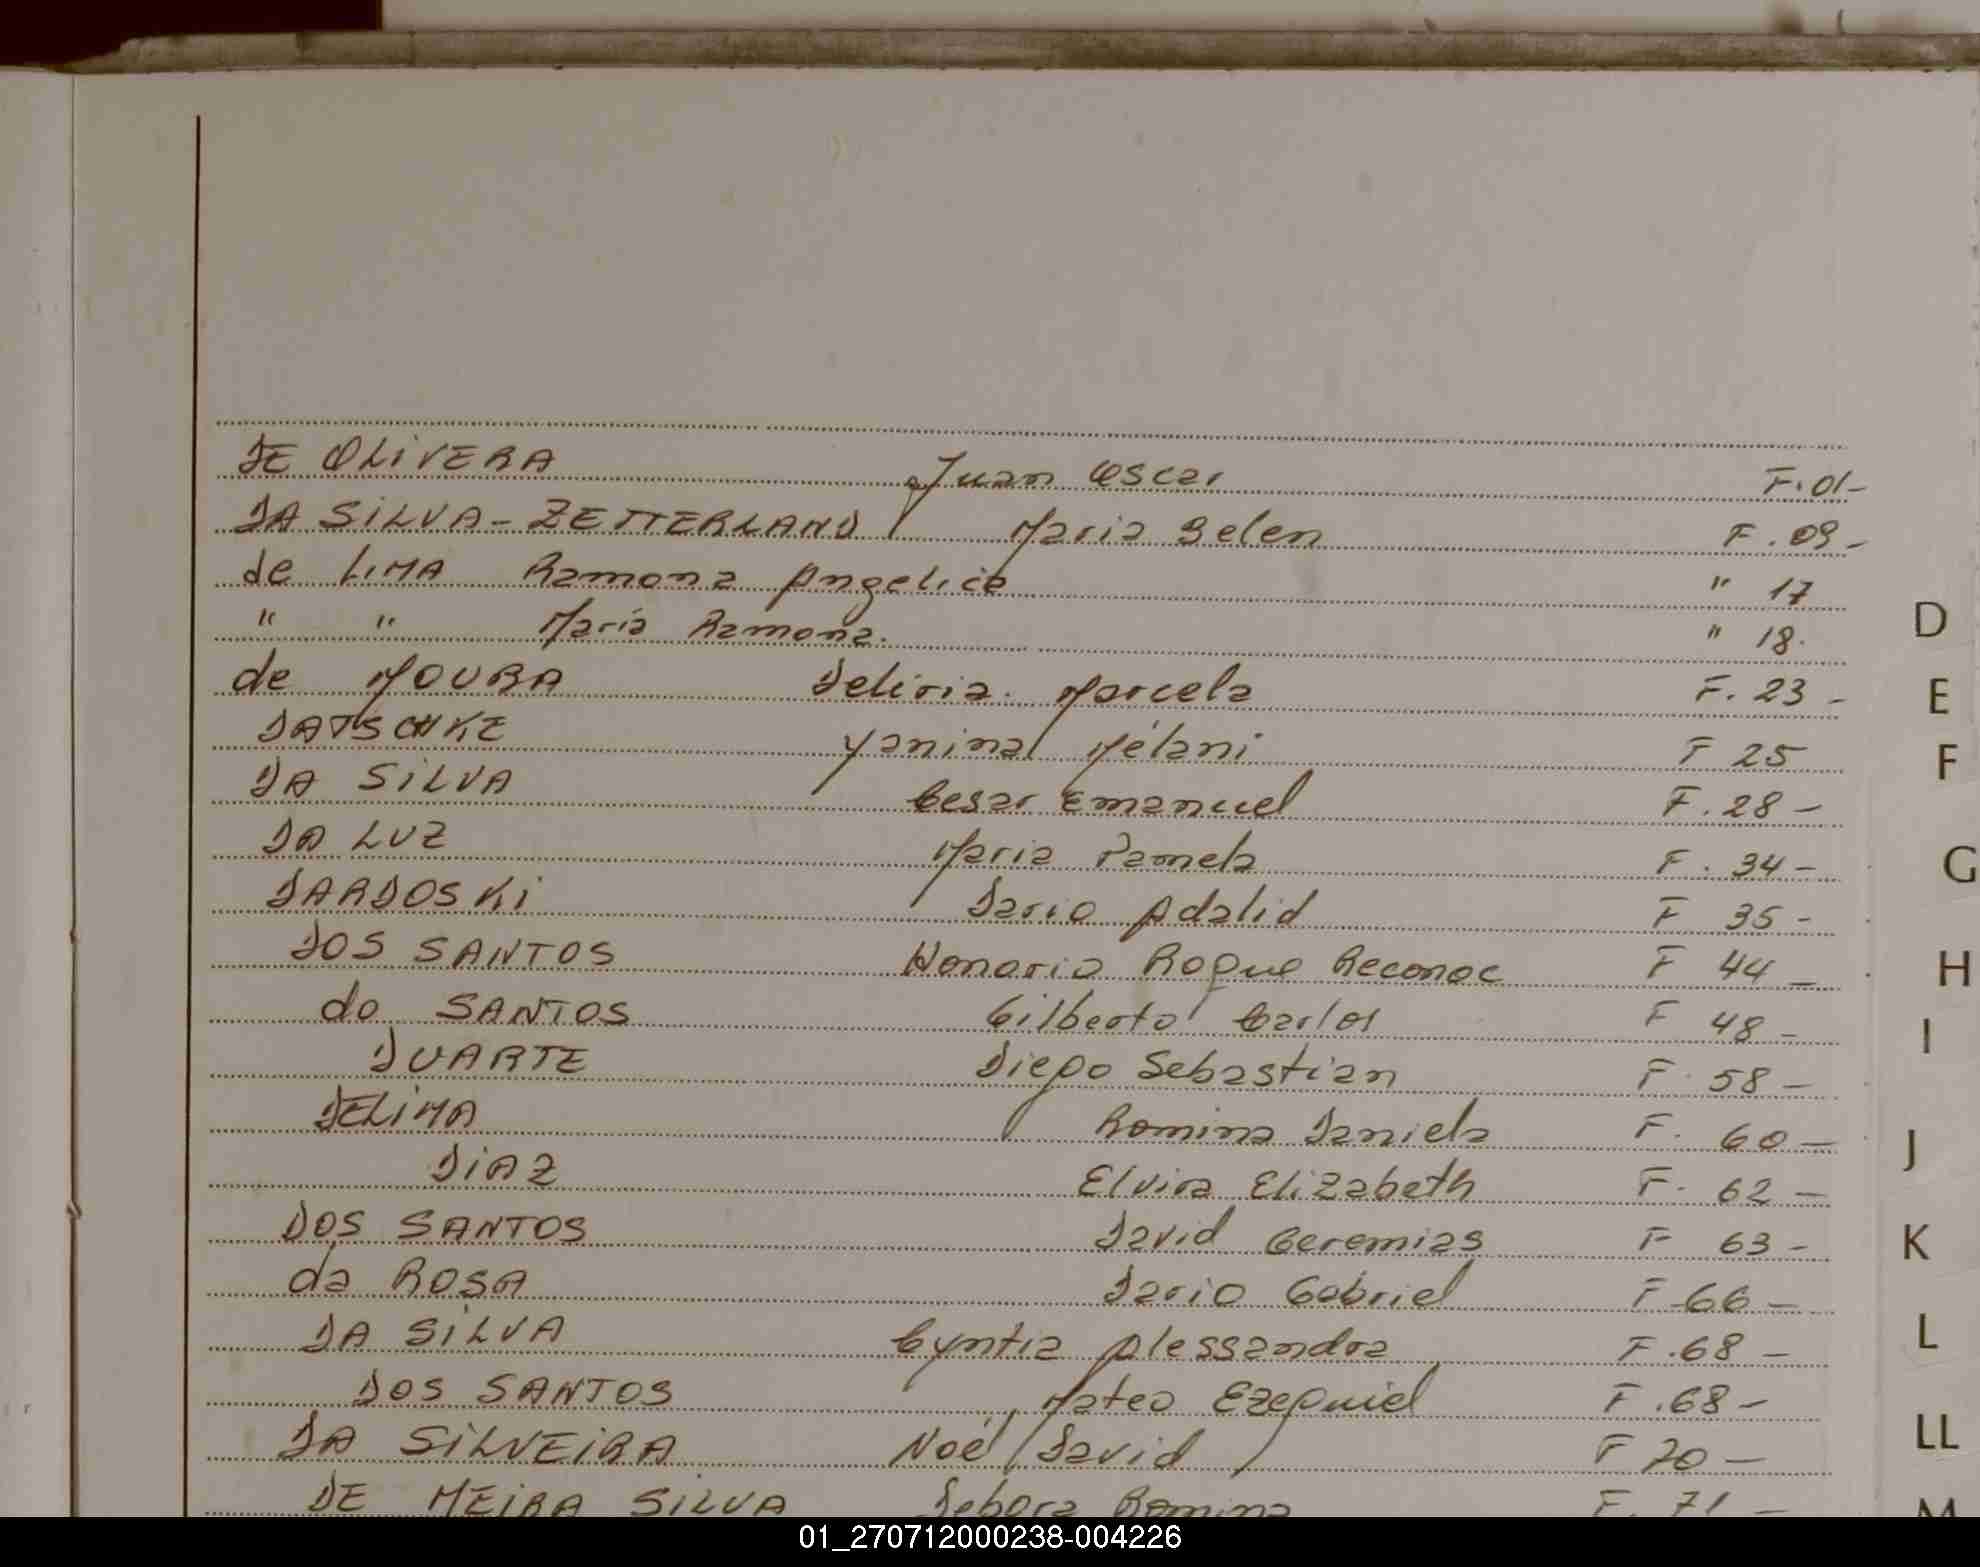 DE OLIVERA Juan Oscar F. 01-
DA SILVA-ZETTERLAND Maria Belen F. 09-
de LIMA Ramona Angelica " 17
" " María Ramona. " 18.
de MOURA Deliria Marcela F. 23-
DATSCHKE Yanina Mélani F 25
DA SILVA Cesar Emanuel F. 28-
DA LUZ Maria Pamela F. 34-
DARDOSKI Dario Adalid F 35-
DOS SANTOS Honorio Roque Reconoc F 44-
do SANTOS Gilberto Carlos F 48-
DUARTE Diego Sebastian F. 58-
DELIMA Romina Daniela F. 60-
DIAZ Elvira Elizabeth F. 62-
DOS SANTOS David Geremias F 63-
da ROSA Dario Gabriel F 66-
DA SILVA Cyntia Alessandra F. 68-
DOS SANTOS Mateo Ezequiel F. 68-
DA SILVEIRA Noé David F 70-
DE MEIRA SILVA Debora Romina F. 71-
D
E
F
G
H
I
J
K
L
LL
M
01_270712000238-004226